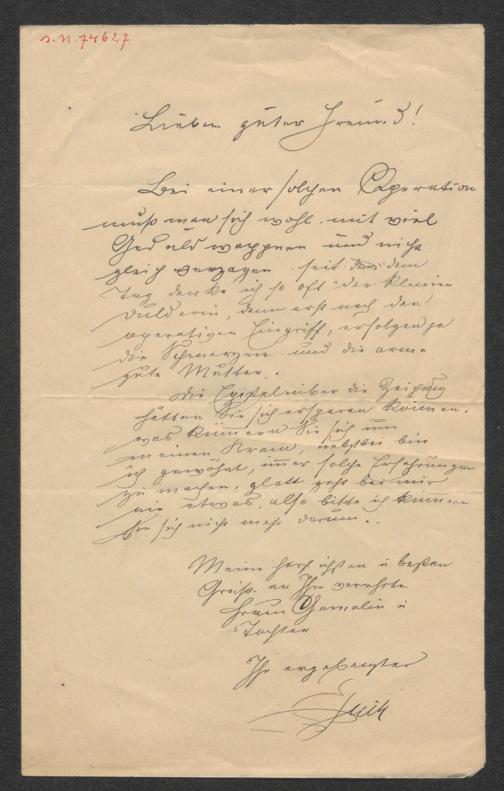 J.N. 74627
Lieber guter Freund!
Bei einer solchen Operation
muß man sich wohl mit viel
Geduld wappnen und nicht
gleich verzagen. Seit dem
Tag denke ich so oft der kleinen
Dulderin, denn erst nach den
operativen Eingriff, erfolgen ja
die Schmerzen und die arme
gute Mutter.
Die Epistel über die Zeitung
hätten Sie sich ersparen können.
was kümmern Sie sich um
meinen Kram, nebstbei bin
ich gewöhnt, immer solche Erfahrungen
zu machen, glatt geht bei mir
nie etwas. also bitte ich kümmern
Sie sich nicht mehr darum.
Meine herzlichsten u besten
Grüße an Ihre verehrte
Frau Gemalin u
Tochter
Ihr ergebenster